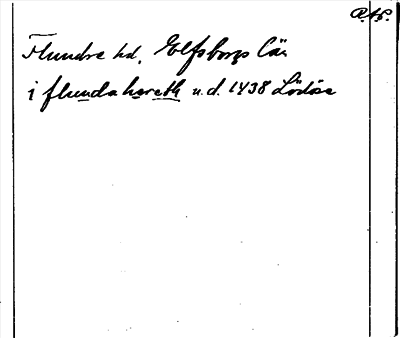 Flundre hd, Elfsborgs län
i flunda hæreth u.d. 1438 Lödöse